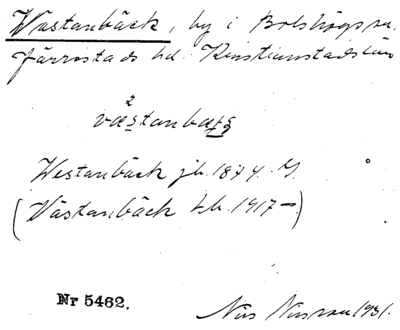 Västanbäck, by i Bolshögs sn.
Järrestads hd. Kristianstads län
västanbæk
Westanbäck jb. 1874. M.
(Västanbäck kb. 1917 –)
Nr 5462.
Nils Nilsson 1931.